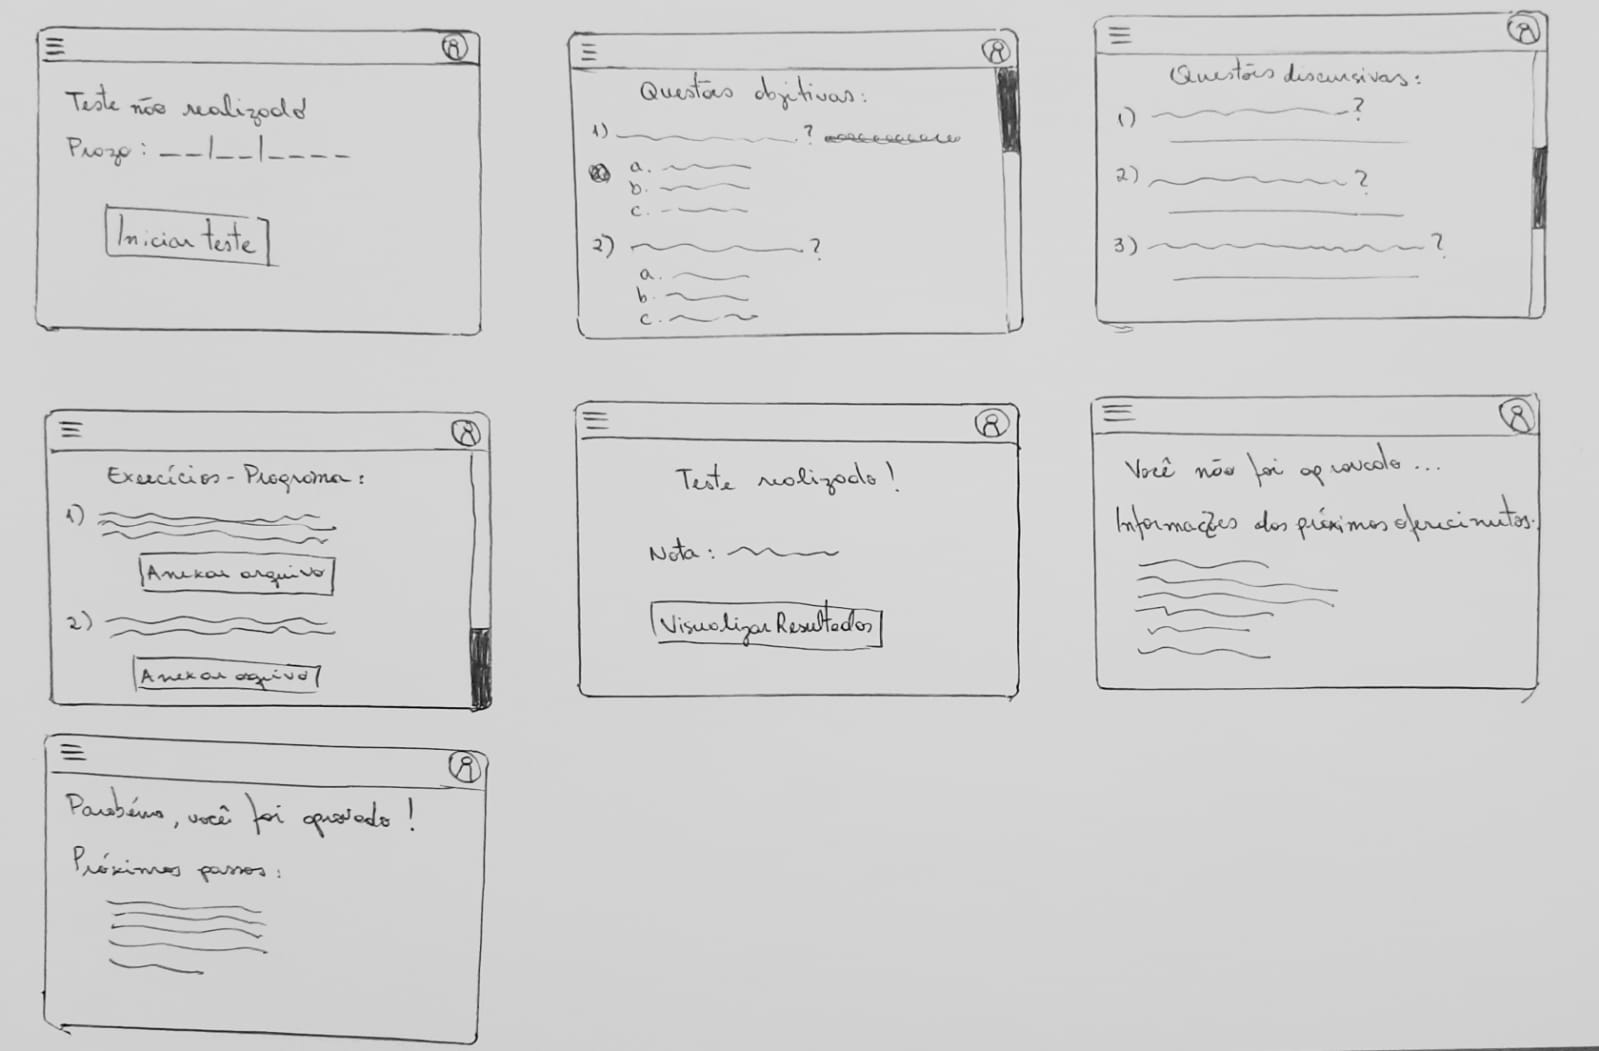 Teste não realizado!
Prazo: __/__/____
Iniciar teste
Questões objetivas:
1) ?
a.
b.
c.
2) ?
a.
b.
c.
Questões discursivas:
1) ?
2) ?
3) ?
Exercícios-Programa:
1)
Anexar arquivo
2)
Anexar arquivo
Teste realizado!
Nota:
Visualizar Resultados
Você não foi aprovado...
Informações dos próximos oferecimentos:
Parabéns, você foi aprovado!
Próximos passos: